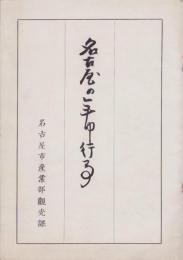 名古屋の年中行事
名古屋市産業部観光課